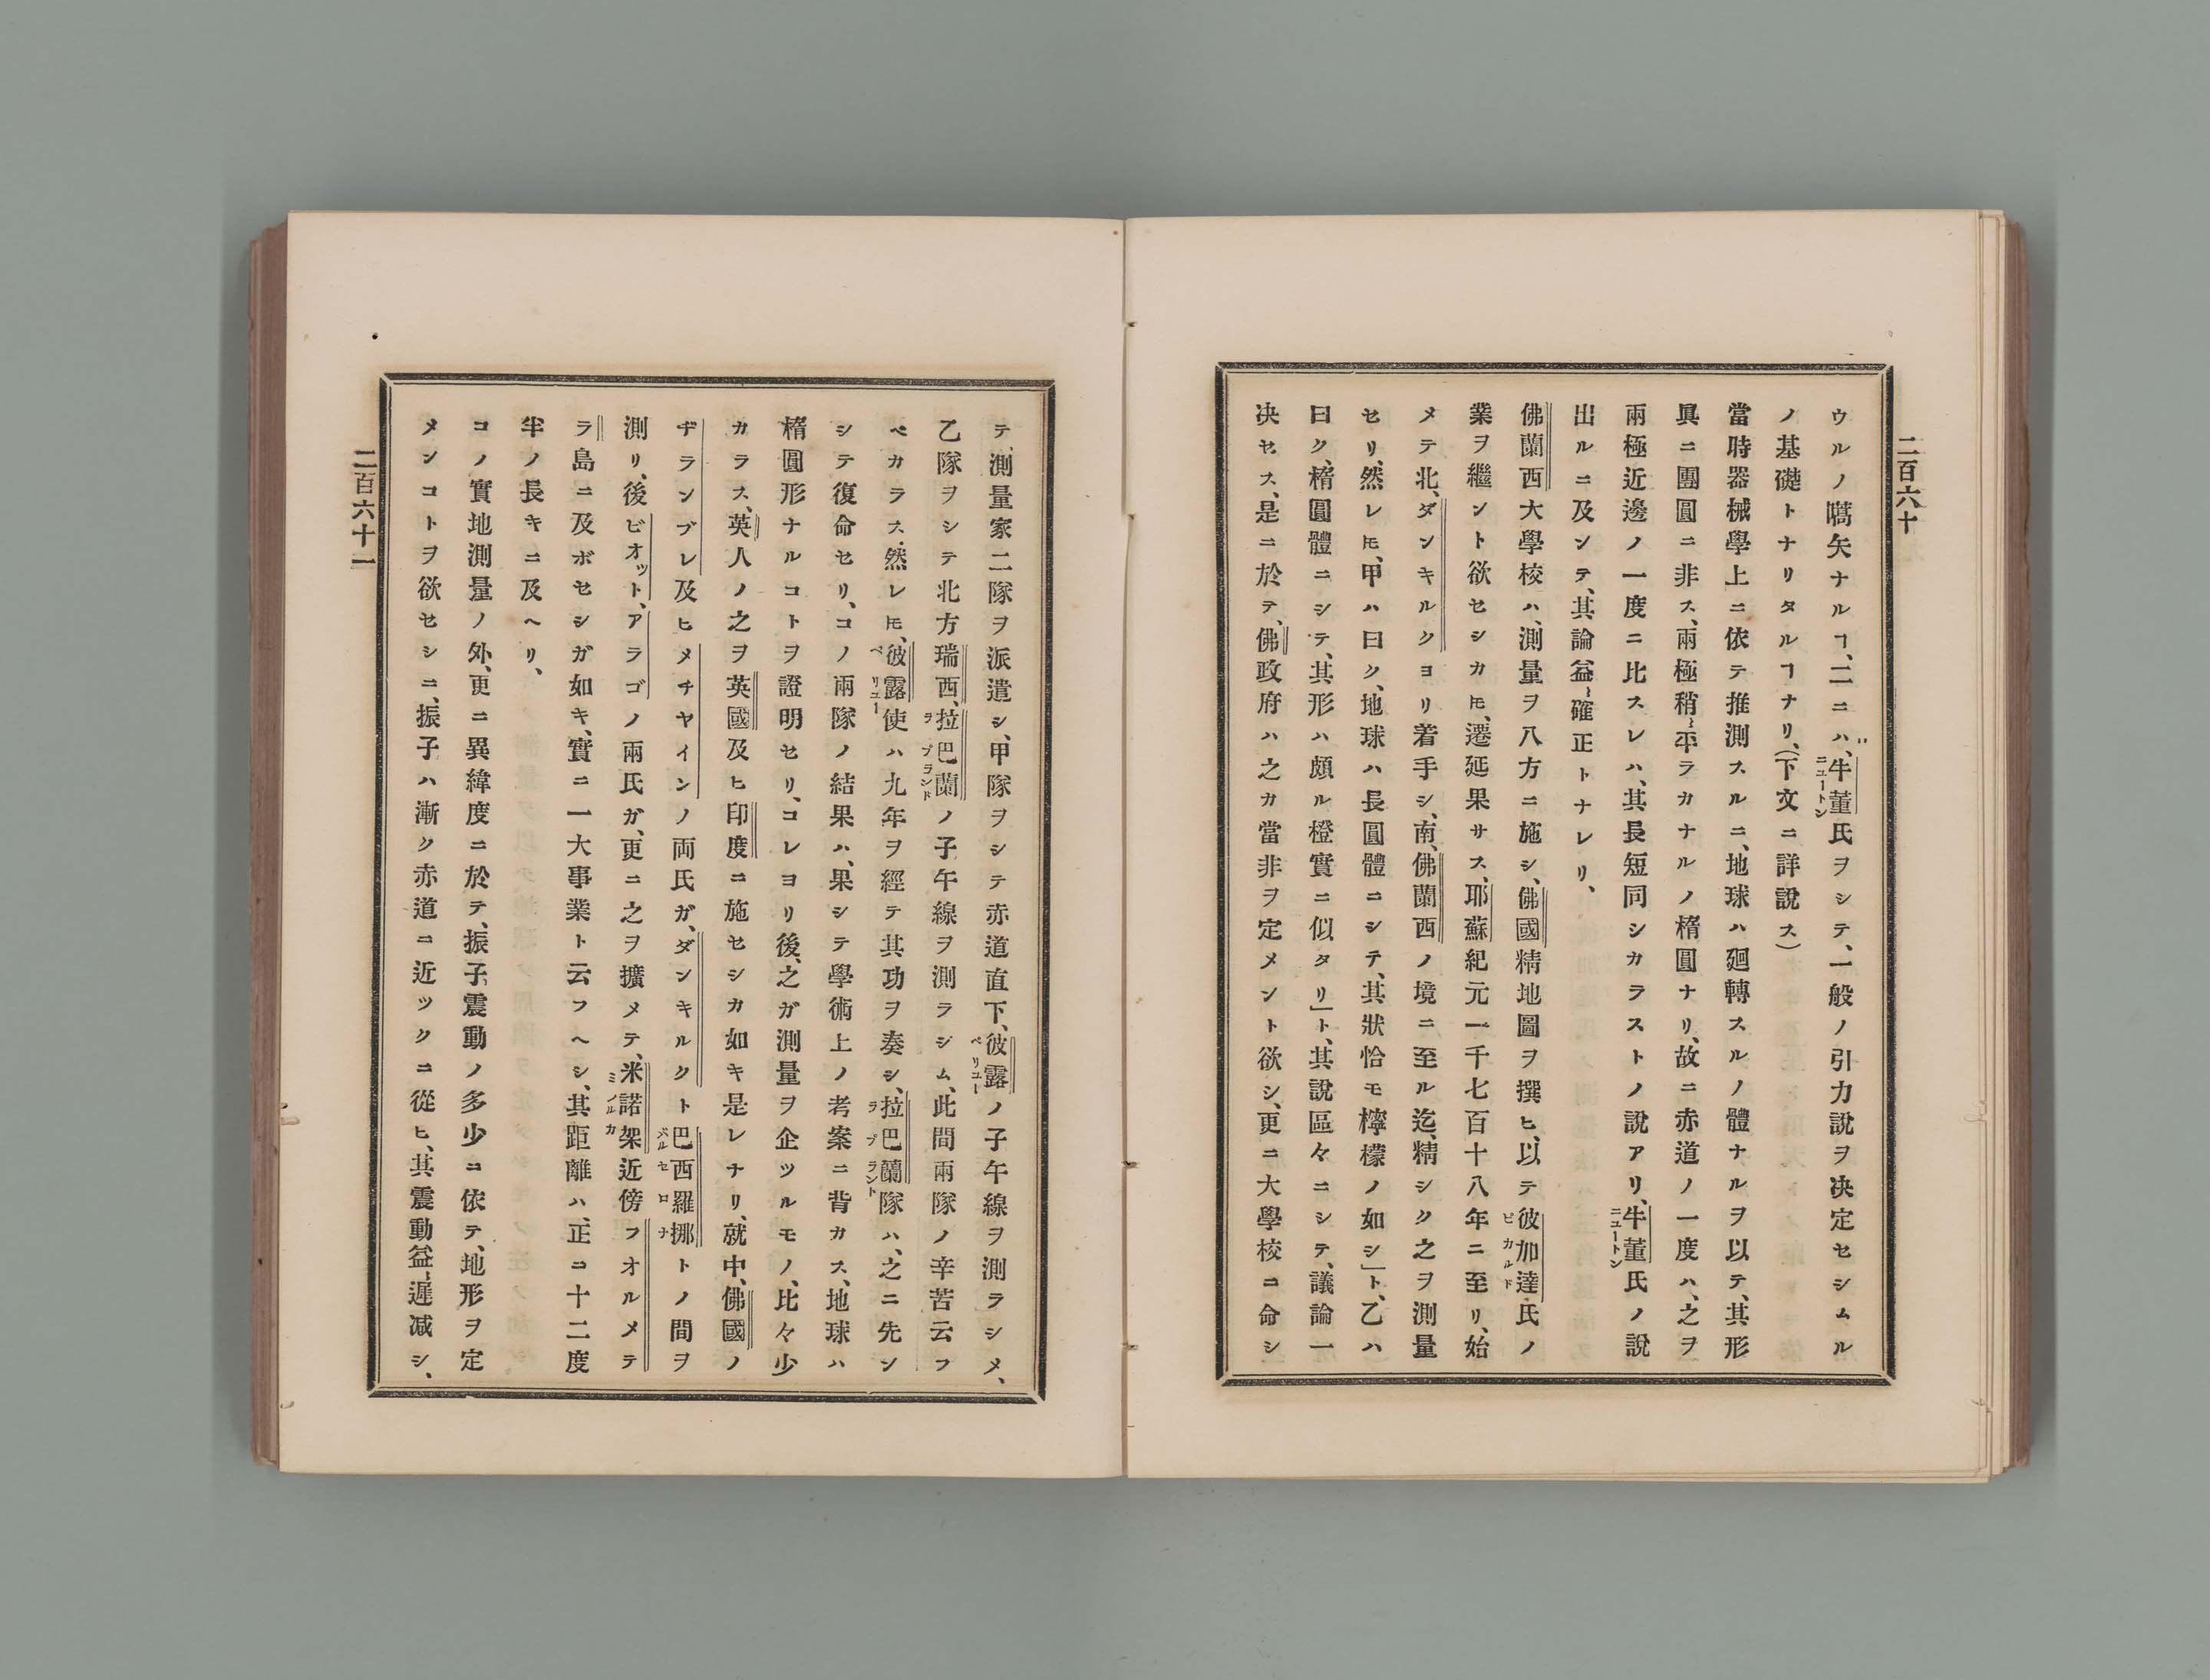 二百六十
ウルノ嚆矢ナルヿ、二ニハ、牛董氏ヲシテ、一般ノ引力說ヲ决定セシムル
ニュートン
ノ基礎トナリタルヿナリ、(下文ニ詳說ス)
當時器械學上ニ依テ推測スルニ、地球ハ廻轉スルノ體ナルヲ以テ、其形
眞ニ團圓ニ非ス、兩極稍〻平ラカナルノ楕圓ナリ、故ニ赤道ノ一度ハ、之ヲ
兩極近邊ノ一度ニ比スレハ、其長短同シカラストノ說アリ、牛董氏ノ說
ニュートン
出ルニ及ンテ、其論益〻確正トナレリ、
佛蘭西大學校ハ、測量ヲ八方ニ施シ、佛國精地圖ヲ撰ヒ、以テ彼加達氏ノ
ピカルド
業ヲ繼ント欲セシカㇳモ、遷延果サス、耶蘇紀元一千七百十八年ニ至リ、始
メテ北、ダンキルクヨリ着手シ、南、佛蘭西ノ境ニ至ル迄、精シク之ヲ測量
セリ、然レㇳモ、甲ハ曰ク、地球ハ長圓體ニシテ、其狀恰モ檸檬ノ如シ」ト、乙ハ
曰ク、楕圓體ニシテ、其形ハ頗ル橙實ニ似タリ」ト、其說區々ニシテ、議論一
决セス、是ニ於テ、佛政府ハ之カ當非ヲ定メント欲シ、更ニ大學校ニ命シ
テ、測量家二隊ヲ派遣シ、甲隊ヲシテ赤道直下、彼露ノ子午線ヲ測ラシメ、
ペリユー
乙隊ヲシテ北方瑞西、拉巴蘭ノ子午線ヲ測ラシム、此間兩隊ノ辛苦云フ
ラプランド
ベカラス、然レㇳモ、彼露使ハ九年ヲ經テ其功ヲ奏シ、拉巴蘭隊ハ、之ニ先ン
ペリユー
ラプラント
シテ復命セリ、コノ兩隊ノ結果ハ、果シテ學術上ノ考案ニ背カス、地球ハ
楕圓形ナルコトヲ證明セリ、コレヨリ後、之ガ測量ヲ企ツルモノ、比々少
カラス、英人ノ之ヲ英國及ヒ印度ニ施セシカ如キ是レナリ、就中、佛國ノ
ヂランブレ及ヒメチヤインノ両氏ガ、ダンキルクト巴西羅挪トノ間ヲ
バルセロナ
測リ、後ビオット、アラゴノ兩氏ガ、更ニ之ヲ擴メテ、米諾架近傍フオルメテ
ミノルカ
ラ島ニ及ボセシガ如キ、實ニ一大事業ト云フヘシ、其距離ハ、正ニ十二度
半ノ長キニ及ヘリ、
コノ實地測量ノ外、更ニ異緯度ニ於テ、振子震動ノ多少ニ依テ、地形ヲ定
メンコトヲ欲セシニ、振子ハ漸ク赤道ニ近ツクニ從ヒ、其震動益〻遲减シ、
二百六十一